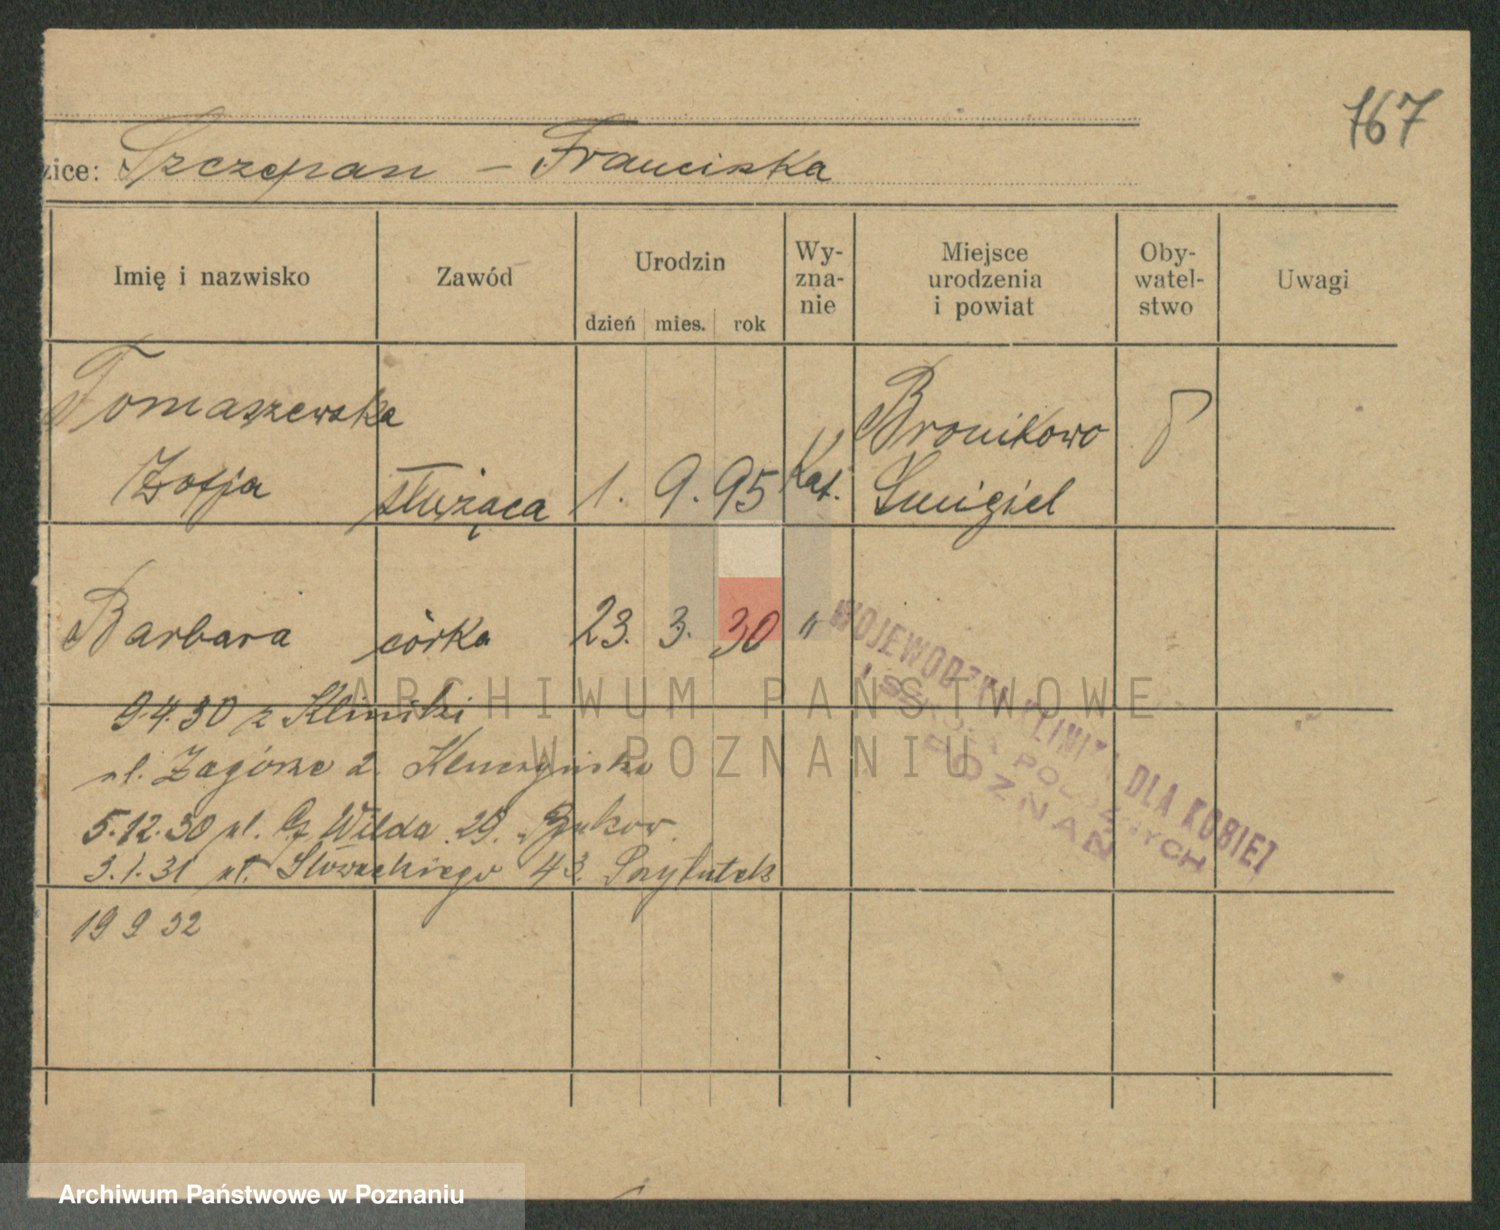 167
zice: Szczepan – Franciszka
Imię i nazwisko Zawód Urodzin Wy-zna-nie Miejsce urodzenia i powiat Oby-watel-stwo Uwagi
dzień mies. rok
Tomaszewska Bronikowo
Zofja służąca 1. 9. 95 Kat. Śmigiel
Barbara córka 23. 3. 30 "
9.4.30 z Kliniki
ul. Zagórze 2.
5.12.30 ul. Wilda 29.
3.1.31 ul. Słowackiego 43.
19 9 32
WOJEWÓDZKA KLINIKA DLA KOBIET
I SZKOŁA POŁOŻNYCH
POZNAŃ
ARCHIWUM PAŃSTWOWE
W POZNANIU
Archiwum Państwowe w Poznaniu